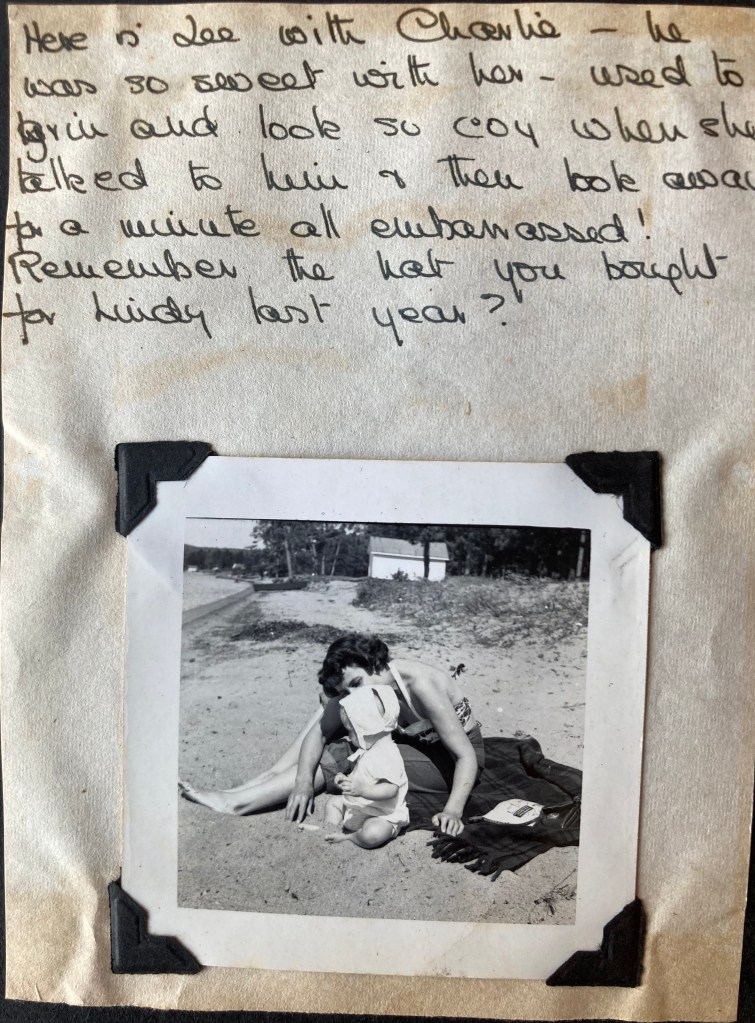 Here is Lee with Charlie – he
was so sweet with her – used to
grin and look so coy when she
talked to him & then look away
for a minute all embarrassed!
Remember the hat you bought
for Lindy last year?